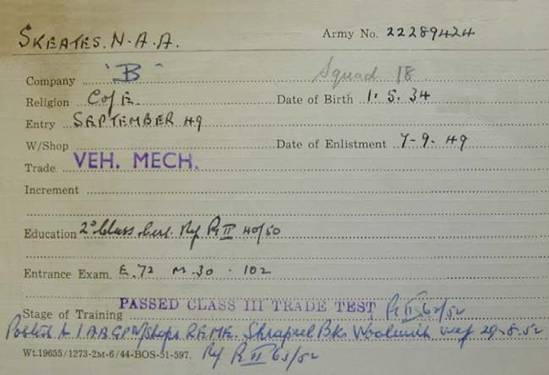 SKEATES. N.A.A. Army No. 22289424
Company "B" Squad 18
Religion C of E. Date of Birth 1.5.34
Entry SEPTEMBER 49
W/Shop Date of Enlistment 7-9-49
Trade VEH. MECH.
Increment
Education 2º Class Cert. Ref Pt II 40/50
Entrance Exam. E.72 M.30 - 102
Stage of Training PASSED CLASS III TRADE TEST Pt II 62/52
Posted to 1 AA BGP W/Shops REME. Shrapnel Bks Woolwich wef 29-8-52
Wt.19655/1273-2m-6/44-BOS-51-597. Ref Pt II 65/52